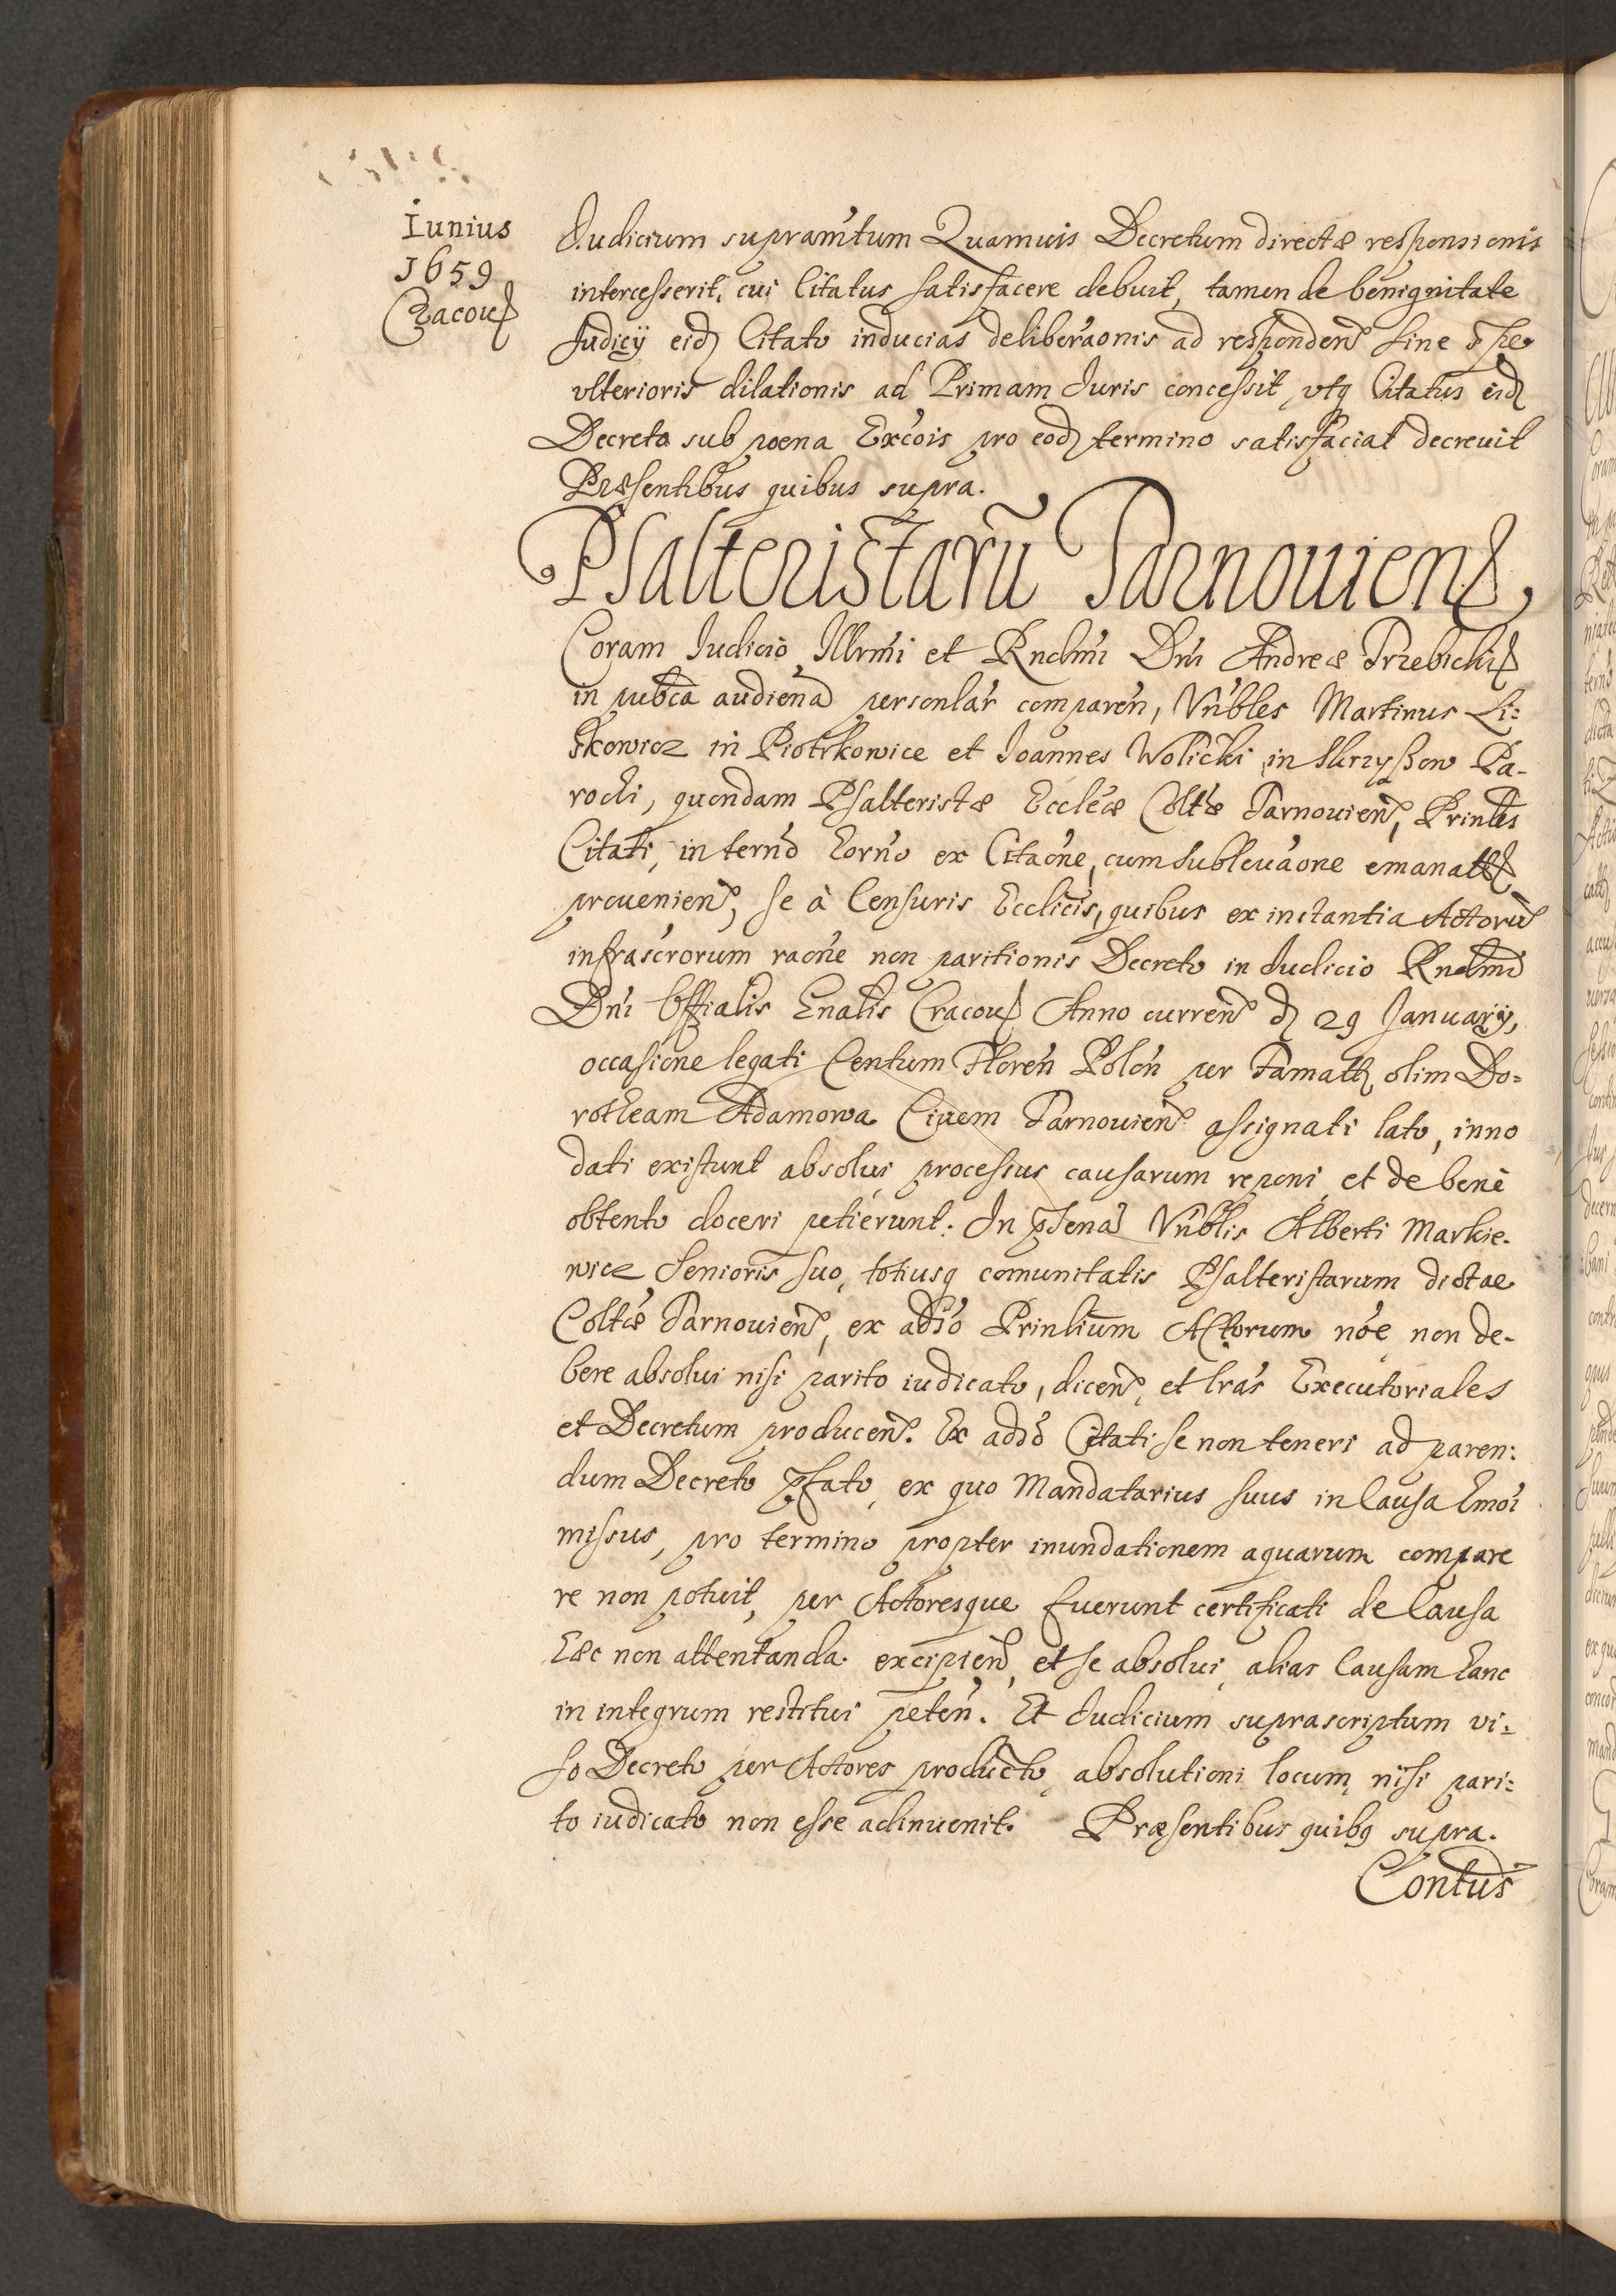 Iunius
1659
Cracou
Judicium supramtum Quamuis Decretum directæ responsionis
intercesserit, cui Citatus satisfacere debuit, tamen de benignitate
Judicÿ eid Citato inducias deliberaonis ad responden sine spe
vlterioris dilationis ad Primam Iuris concessit, vtq Citatus eid
Decreto sub poena Excois pro eod termino satisfaciat decreuit
Præsentibus quibus supra.
Psalteristarũ Tarnouien
Coram Iudicio Illrmi et Rndmi Dni Andreæ Trzebicki
in pubca audiena personlar comparen, Vnbles Martinus Li:
skowicz in Piotrkowice et Ioannes Wolicki in Skrzyszow Pa-
rochi, quondam Psalteristæ Ecclecæ Coltæ Tarnouien, Prinles
Citati, in termo horno ex Citaone, cum subleuaone emanatt
prouenien, se à Censuris Ecclicis, quibus ex instantia Actorũ
infrascrorum raone non paritionis Decreto in Iudicio Rndmi
Dni Offialis Gnalis Cracou Anno curren d 29 Januarÿ,
occasione legati Centum Floren Polon per Famatt olim Do=
rotheam Adamowa Ciuem Tarnouien assignati lato, inno
dati existunt absolui processus causarum reponi et de benè
obtento doceri petierunt. In psena Vnblis Alberti Markie-
wicz Senioris suo, totiusq comunitatis Psalteristarum dictae
Coltæ Tarnouien, ex adso Prinlium Actorum noe non de-
bere absolui nisi parito iudicato, dicen, et lras Executoriales
et Decretum producen. Ex adso Citati se non teneri ad paren:
dum Decreto pfato, ex quo Mandatarius suus in Causa hmoi
missus, pro termino propter inundationem aquarum compare
re non potuit, per Actoresque fuerunt certificati de Causa
hæc non attentanda. excipien, et se absolui, alias Causam hanc
in integrum restitui peten. Et Iudicium suprascriptum vi=
so Decreto per Actores producto, absolutioni locum nisi pari=
to iudicato non esse adinuenit. Præsentibus quibq supra.
Contus